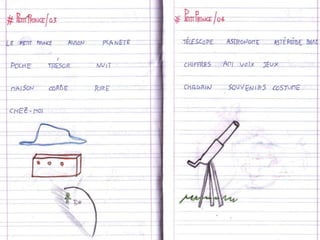 # Petit Prince/03
LE PETIT PRINCE AVION PLANÈTE
POCHE TRÉSOR NUIT
MAISON CORDE RIRE
CHEZ-MOI
# Petit Prince/04
TÉLESCOPE ASTRONOME ASTÉROÏDE
CHIFFRES AMI VOIX JEUX
CHAGRIN SOUVENIRS COSTUME